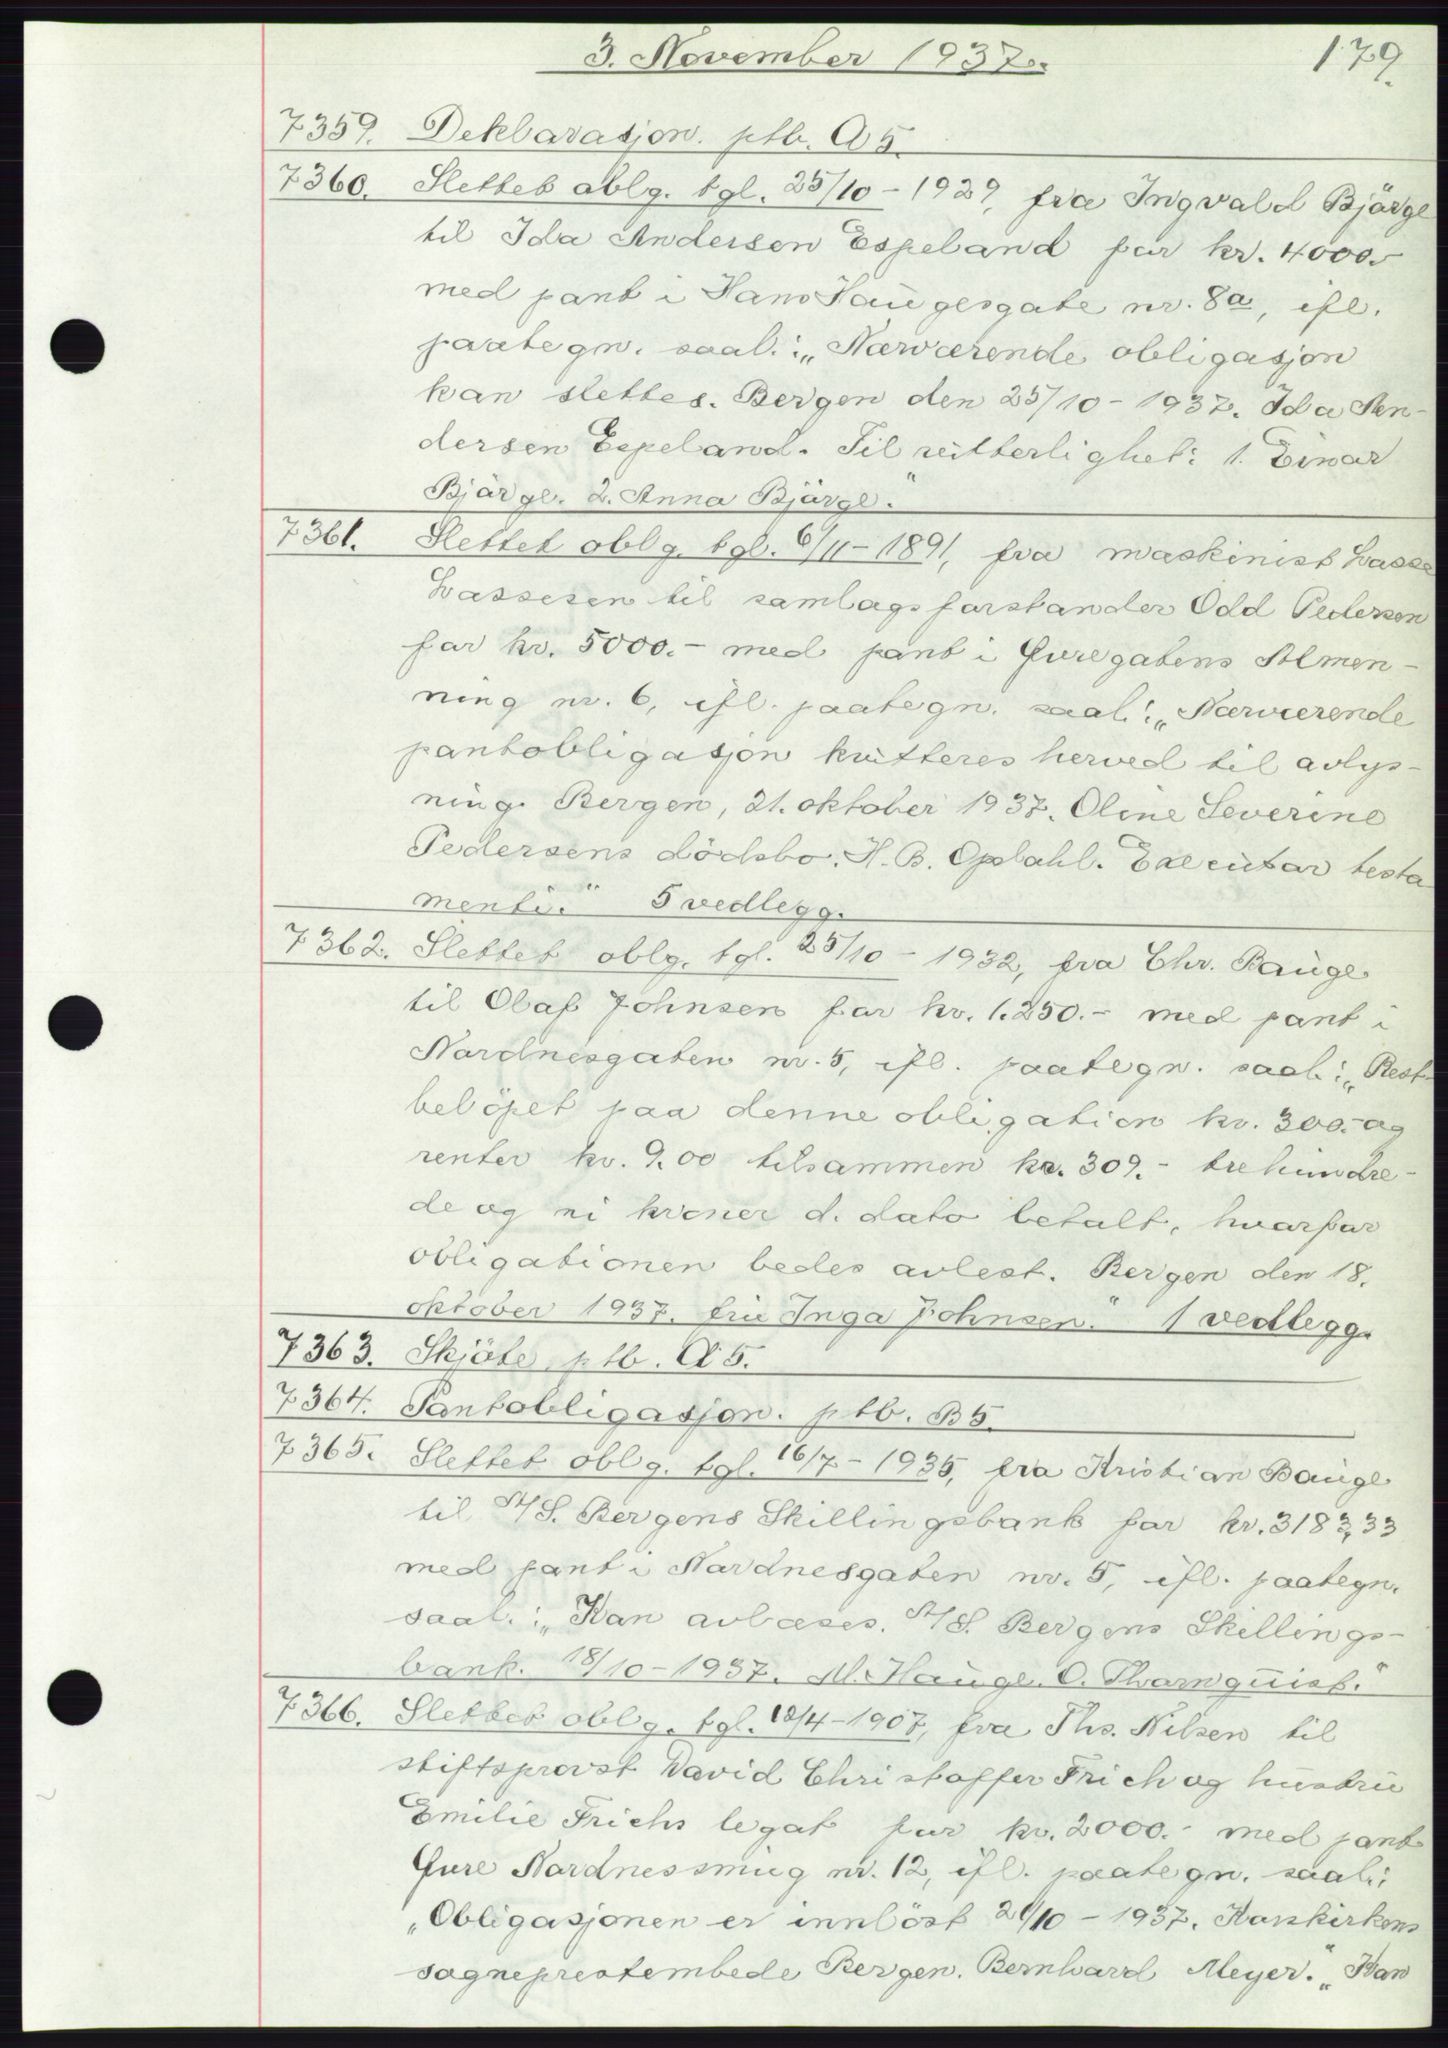 3. November 1937.
179.
7359. Deklarasjon. ptb. A 5.
7360. Slettet oblg. tgl. 25/10 - 1929, fra Ingvald Bjørge
til Ida Andersen Espeland for kr. 4000.-
med pant i Hans Haugesgate nr. 8a, ifl.
paategn. saal.: „Nærværende obligasjon
kan slettes. Bergen den 25/10 - 1937. Ida An-
dersen Espeland. Til vitterlighet: 1. Einar
Bjørge. 2. Anna Bjørge."
7361. Slettet oblg. tgl. 6/11 - 1891, fra maskinist Lasse
Lassesen til samlagsforstander Odd Pedersen
for kr. 5000.- med pant i Øvregatens Almen-
ning nr. 6, ifl. paategn. saal.: „Nærværende
pantobligasjon kvitteres herved til avlys-
ning. Bergen, 21. oktober 1937. Oline Severine
Pedersens dödsbo. H. B. Opdahl. Executor testa
menti." 5 vedlegg.
7362. Slettet oblg. tgl. 25/10 - 1932, fra Chr. Bauge
til Olaf Johnsen for kr. 1.250.- med pant i
Nordnesgaten nr. 5, ifl. paategn. saal.: „Rest-
belöpet paa denne obligation kr. 300.- og
renter kr. 9.00 tilsammen kr. 309.- trehundre-
de og ni kroner d. dato betalt, hvorfor
obligationen bedes avlest. Bergen den 18.
oktober 1937. fru Inga Johnsen." 1 vedlegg.
7363. Skjöte, ptb. A 5.
7364. Pantobligasjon. ptb. B 5.
7365. Slettet oblg. tgl. 16/7 - 1935, fra Kristian Bauge
til A/S. Bergens Skillingsbank for kr. 3183,33
med pant i Nordnesgaten nr. 5, ifl. paategn.
saal.: „Kan avlæses. A/S. Bergens Skillings-
bank. 18/10 - 1937. M. Hauge. O. Thornquist."
7366. Slettet oblg. tgl. 12/4 - 1907, fra Ths. Nilsen til
stiftsprovst David Christoffer Frich og hustru
Emilie Frichs legat for kr. 2000.- med pant
Øvre Nordnessmug nr. 12, ifl. paategn. saal.:
„Obligasjonen er innlöst 21/10 - 1937. Korskirkens
sogneprestembede Bergen. Bernhard Meyer." „Kan